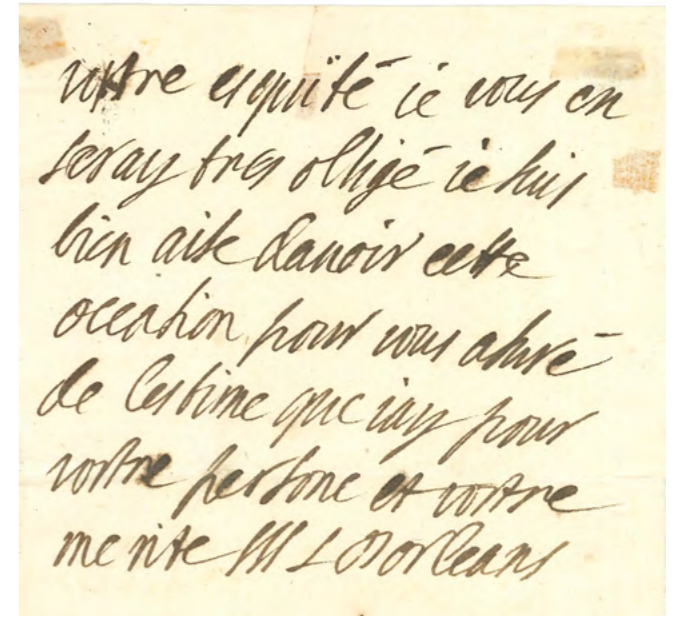 vostre esquité ie vous en
seray tres obligé ie suis
bien aise dauoir cette
occasion pour vous assuré
de lestime que iay pour
vostre persone et vostre
merite M L Dorleans